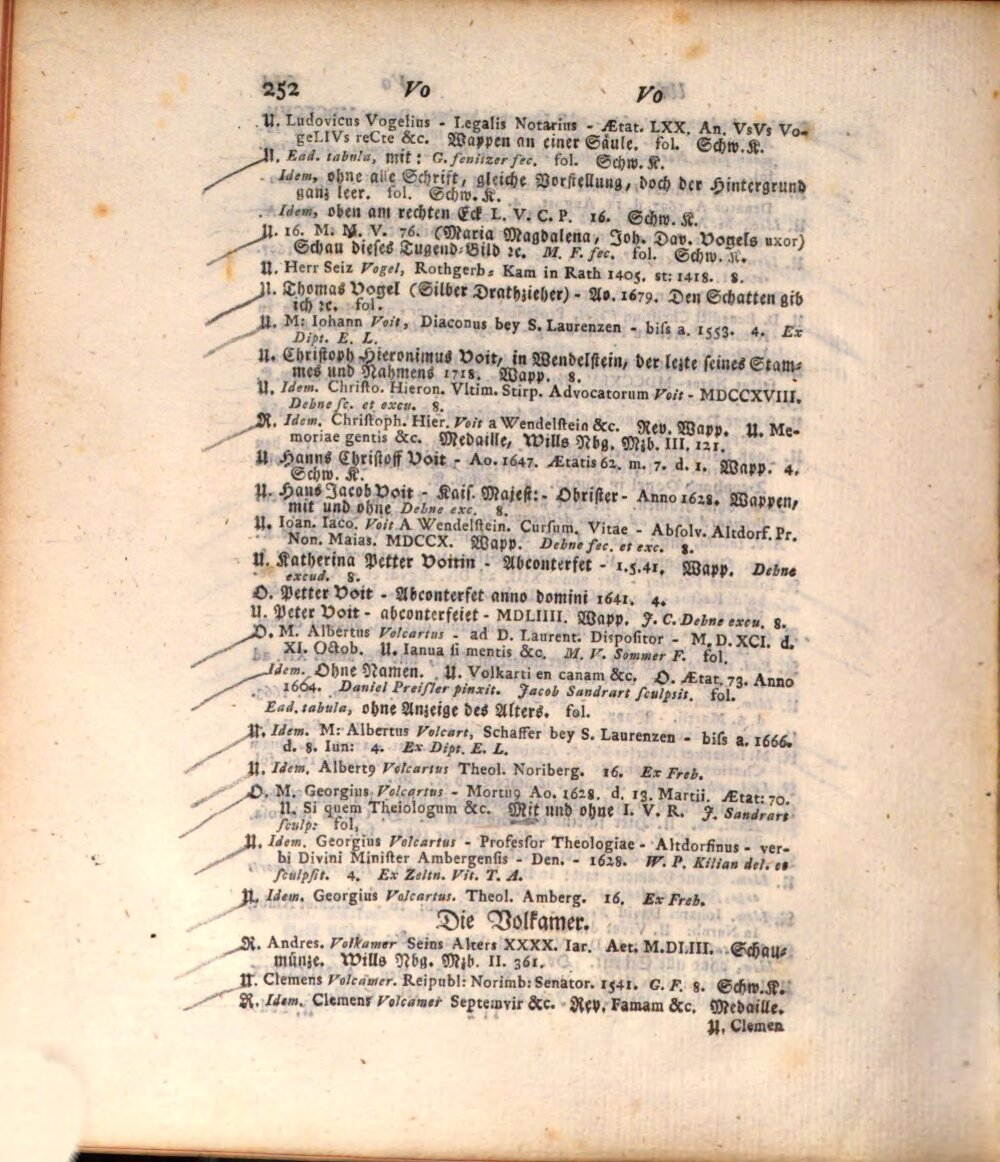 252 Vo Vo
U. Ludovicus Vogelius - Legalis Notarius - Ætat. LXX. An. VsVs Vo-
geLIVs reCte &c. Wappen an einer Säule. fol. Schw. K.
U. Ead. tabula, mit: G. fenitzer sec. fol. Schw. K.
Idem, ohne alle Schrift, gleiche Vorstellung, doch der Hintergrund
ganz leer. fol. Schw. K.
Idem, oben am rechten Eck L. V. C. P. 16. Schw. K.
U. 16. M. M. V. 76. (Maria Magdalena, Joh. Dav. Vogels uxor)
Schau dieses Tugend-Bild ꝛc. M. F. fec. fol. Schw. K.
U. Herr Seiz Vogel, Rothgerb- Kam in Rath 1405. st: 1418. 8.
U. Thomas Vogel (Silber Drathzieher) - Ao. 1679. Den Schatten gib
ich ꝛc. fol.
U. M: Iohann Voit, Diaconus bey S. Laurenzen - biss a. 1553. 4. Ex
Dipt. E. L.
U. Christoph Hieronimus Voit, in Wendelstein, der lezte seines Stam-
mes und Nahmens 1718. Wapp. 8.
U. Idem. Christo. Hieron. Vltim. Stirp. Advocatorum Voit - MDCCXVIII.
Dehne sc. et excu. 8.
R. Idem. Christoph. Hier. Voit a Wendelstein &c. Rev. Wapp. U. Me-
moriae gentis &c. Medaille, Wills Nbg. Mzb. III. 121.
U Hanns Christoff Voit - Ao. 1647. Ætatis 62. m. 7. d. 1. Wapp. 4.
Schw. K.
U. Hans Jacob Voit - Kais. Majest:- Obrister - Anno 1628. Wappen,
mit und ohne Dehne exc. 8.
U. Ioan. Iaco. Voit A Wendelstein. Cursum. Vitae - Absolv. Altdorf. Pr.
Non. Maias. MDCCX. Wapp. Dehne fec. et exc. 8.
U. Katherina Petter Voitin - Abconterfet - 1.5.41. Wapp. Dehne
excud. 8.
O. Petter Voit - Abconterfet anno domini 1641. 4.
U. Peter Voit - abconterfeiet - MDLIIII. Wapp. J. C. Dehne excu. 8.
O. M. Albertus Volcartus - ad D. Laurent. Dispositor - M. D. XCI. d.
XI. Octob. U. Ianua si mentis &c. M. V. Sommer F. fol.
Idem. Ohne Namen. U. Volkarti en canam &c. O. Ætat. 73. Anno
1664. Daniel Preisler pinxit. Jacob Sandrart sculpsit. fol.
Ead. tabula, ohne Anzeige des Alters. fol.
U. Idem. M: Albertus Volcart, Schaffer bey S. Laurenzen - biss a. 1666.
d. 8. Iun: 4. Ex Dipt. E. L.
U. Idem. Albert9 Volcartus Theol. Noriberg. 16. Ex Freh.
O. M. Georgius Volcartus - Mortu9 Ao. 1628. d. 13. Martii. Ætat: 70.
U. Si quem Theiologum &c. Mit und ohne I. V. R. J. Sandrart
sculp: fol.
U. Idem. Georgius Volcartus - Professor Theologiae - Altdorfinus - ver-
bi Divini Minister Ambergensis - Den. - 1628. W. P. Kilian del. et
sculpsit. 4. Ex Zeltn. Vit. T. A.
U. Idem. Georgius Volcartus. Theol. Amberg. 16. Ex Freh.
Die Volkamer.
R. Andres. Volkamer Seins Alters XXXX. Iar. Aet. M.DLIII. Schau-
münze. Wills Nbg. Mzb. II. 361.
U. Clemens Volcamer. Reipubl: Norimb: Senator. 1541. G. F. 8. Schw. K.
R. Idem. Clemens Volcamer Septemvir &c. Rev. Famam &c. Medaille.
U. Clemen